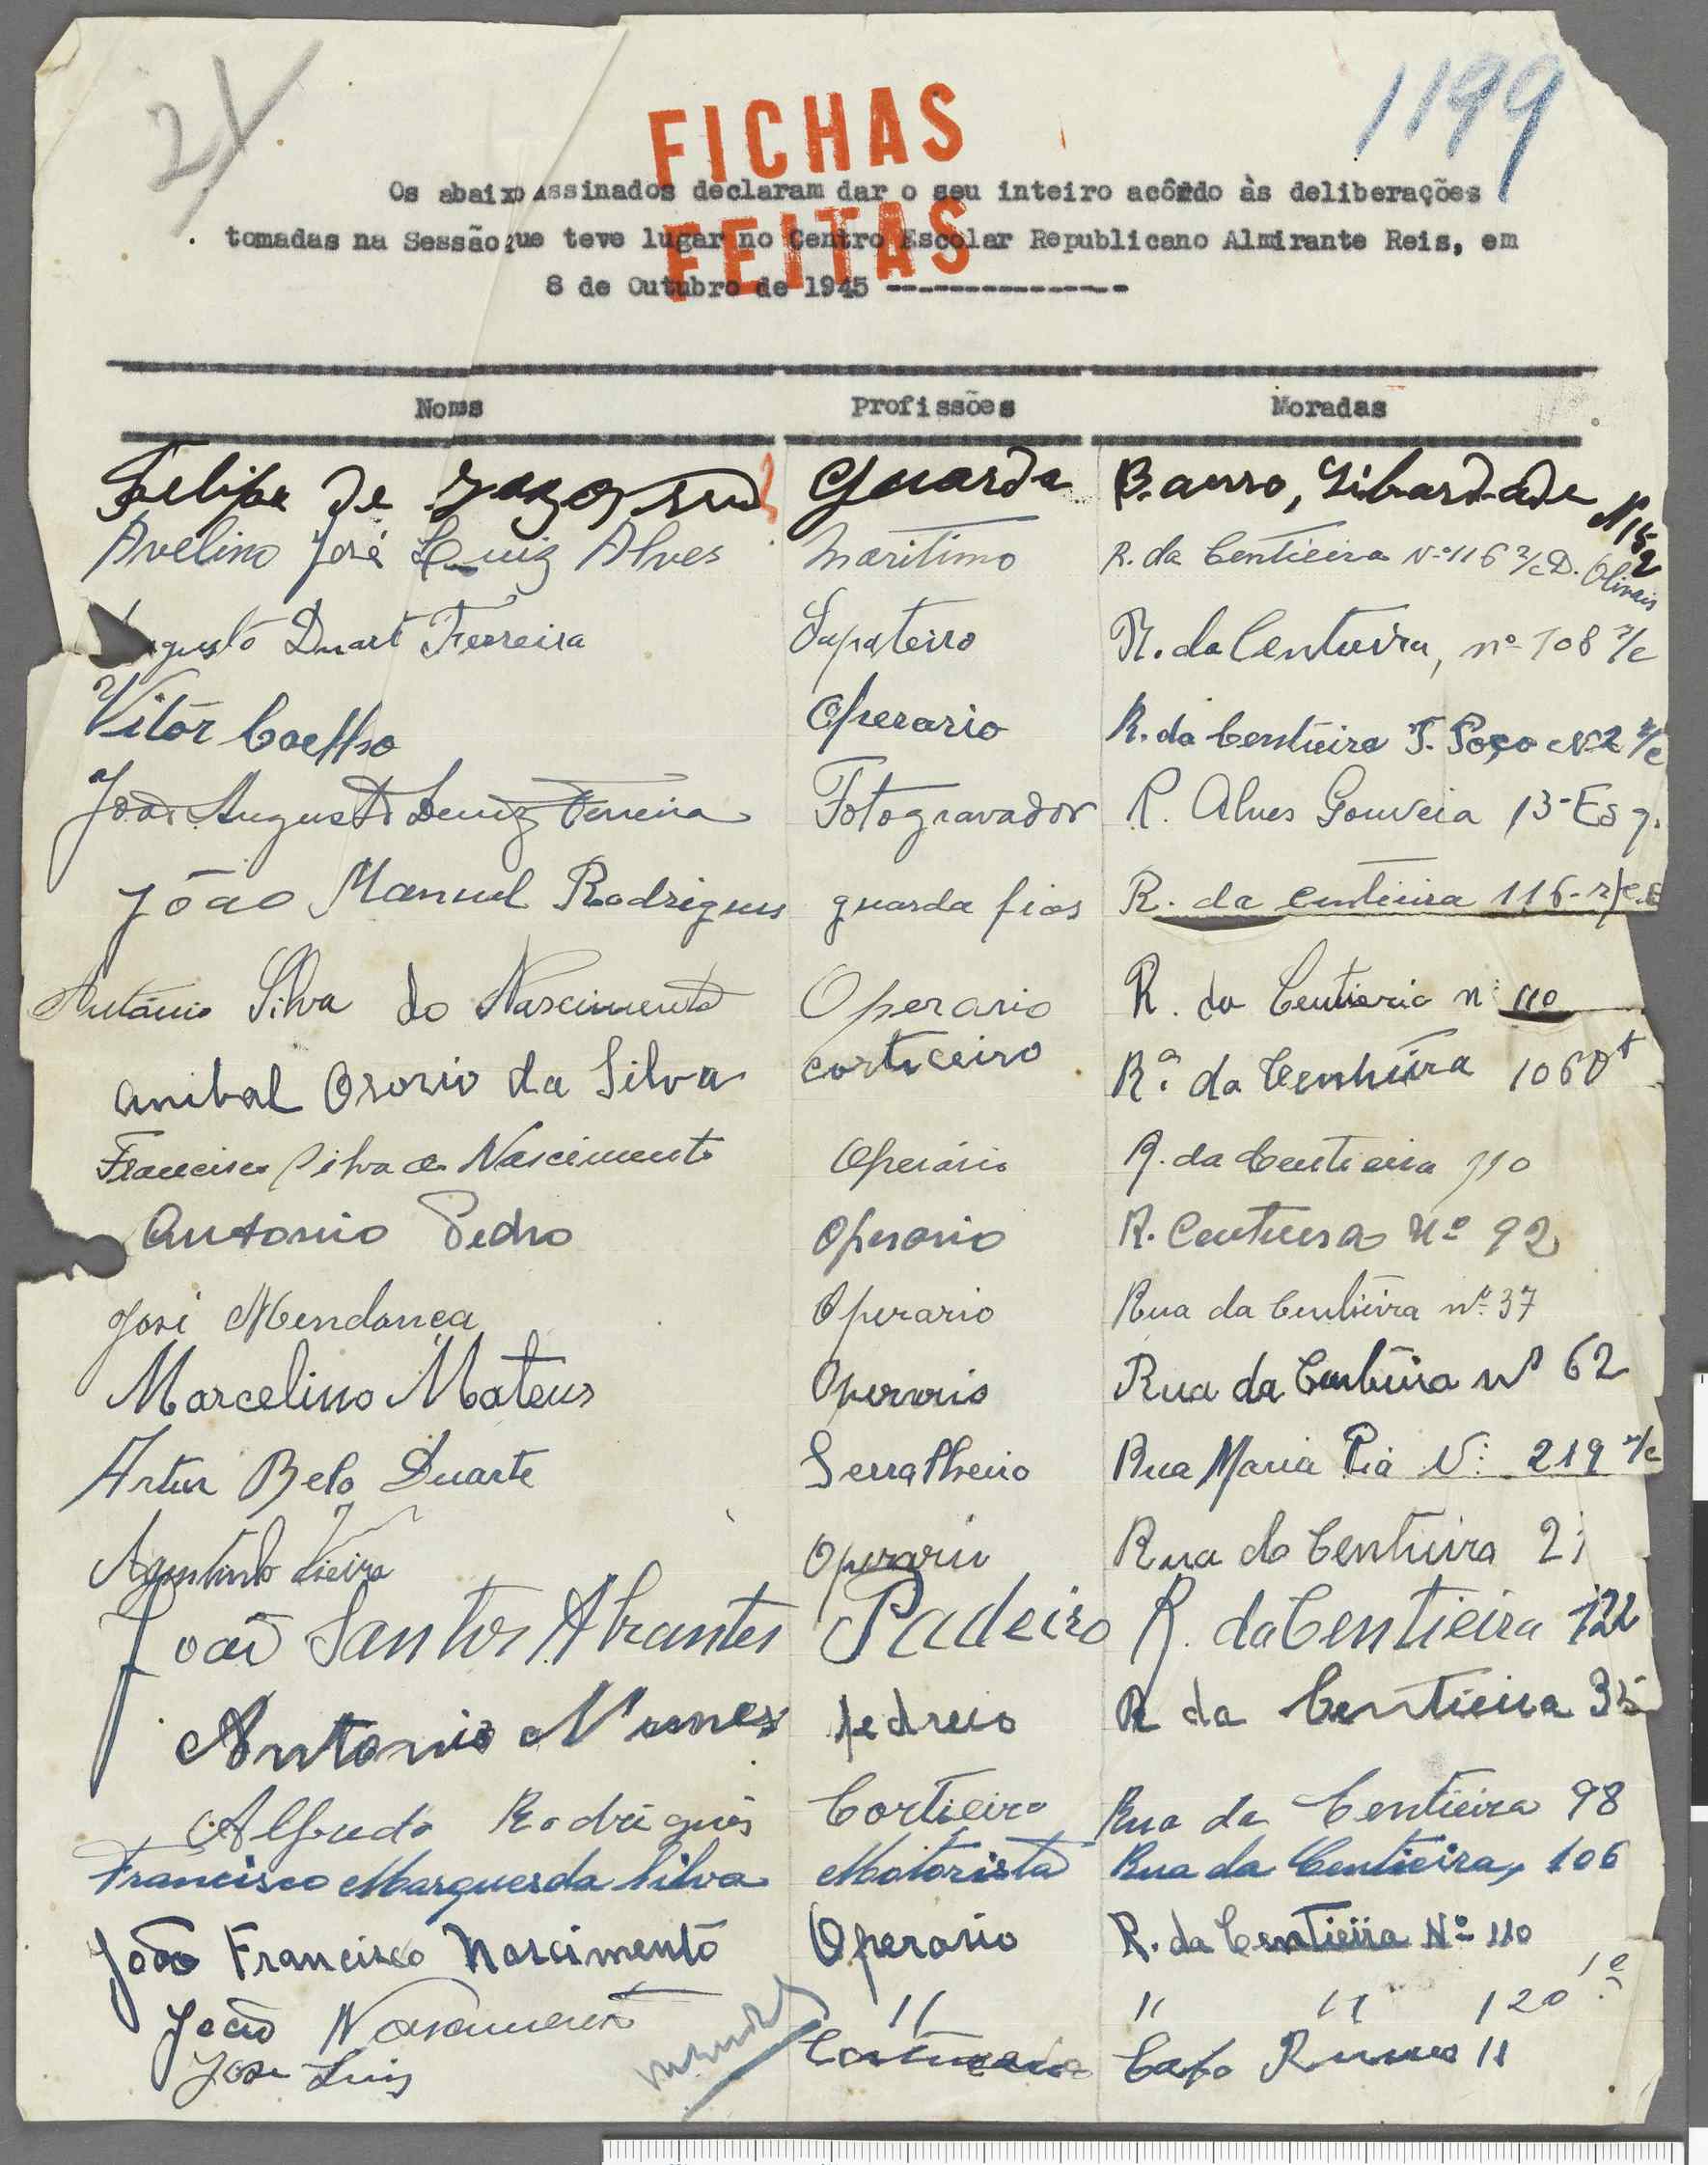 21
1199
FICHAS
FEITAS
Os abaixo assinados declaram dar o seu inteiro acôrdo às deliberações
tomadas na Sessão que teve lugar no Centro Escolar Republicano Almirante Reis, em
8 de Outubro de 1945 ---------------
Nomes Profissões Moradas
Felipe de Guarda Bairro, Libardade N 152
Avelino José Luiz Alves Maritimo R. da Centieira Nº 116 r/c D. Olivais
Augusto Duart Ferreira Sapateiro R. da Centieira, nº 108 r/c
Vitór Coelho Operario R. da Centieira T. Poço Nº 2 r/c
João Augusto Ferreira Fotogravador R. Alves Gouveia 13-Esq.
João Manuel Rodrigues guarda fios R. da Centieira 116-r/c. E
António Silva do Nascimento Operario R. da Centieira nº 110
Anibal Osorio da Silva corticeiro Rª. da Centieira 106
Francisco Silva do Nascimento Operário R. da Centieira 110
Antonio Pedro Operario R. Centieira Nº 92
José Mendonça Operario Rua da Centieira nº 37
Marcelino Mateus Operario Rua da Centieira nº 62
Artur Belo Duarte Serralheiro Rua Maria Pia Nº 219 r/c
Agostinho Vieira Operario Rua da Centieira 21
João Santos Abrantes Padeiro R. da Centieira 122
Antonio Nunes pedreio R da Centieira 35
Alfredo Rodrigues Cortieiro Rua da Centieira 98
Francisco Marques da Silva Motorista Rua da Centieira, 106
João Francisco Nascimento Operario R. da Centieira Nº 110
João Nascimento " " " 120 1º
José Luis 11